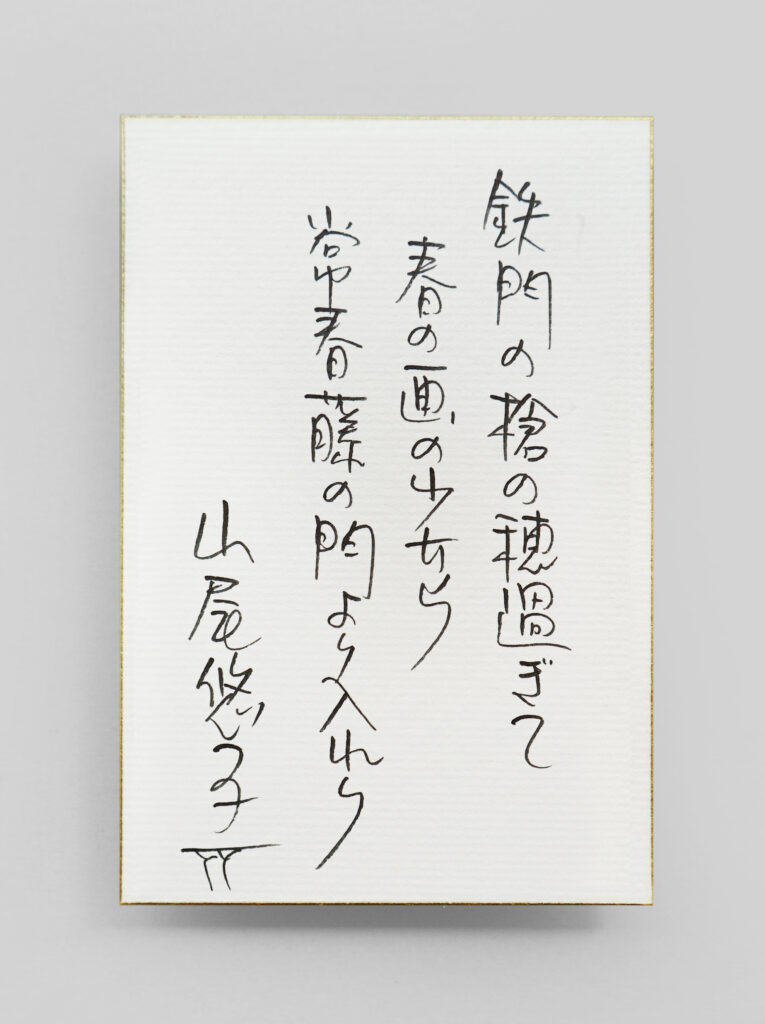 鉄門の槍の穂過ぎて
春の画の少女ら
常春藤の門より入れり
山尾悠子